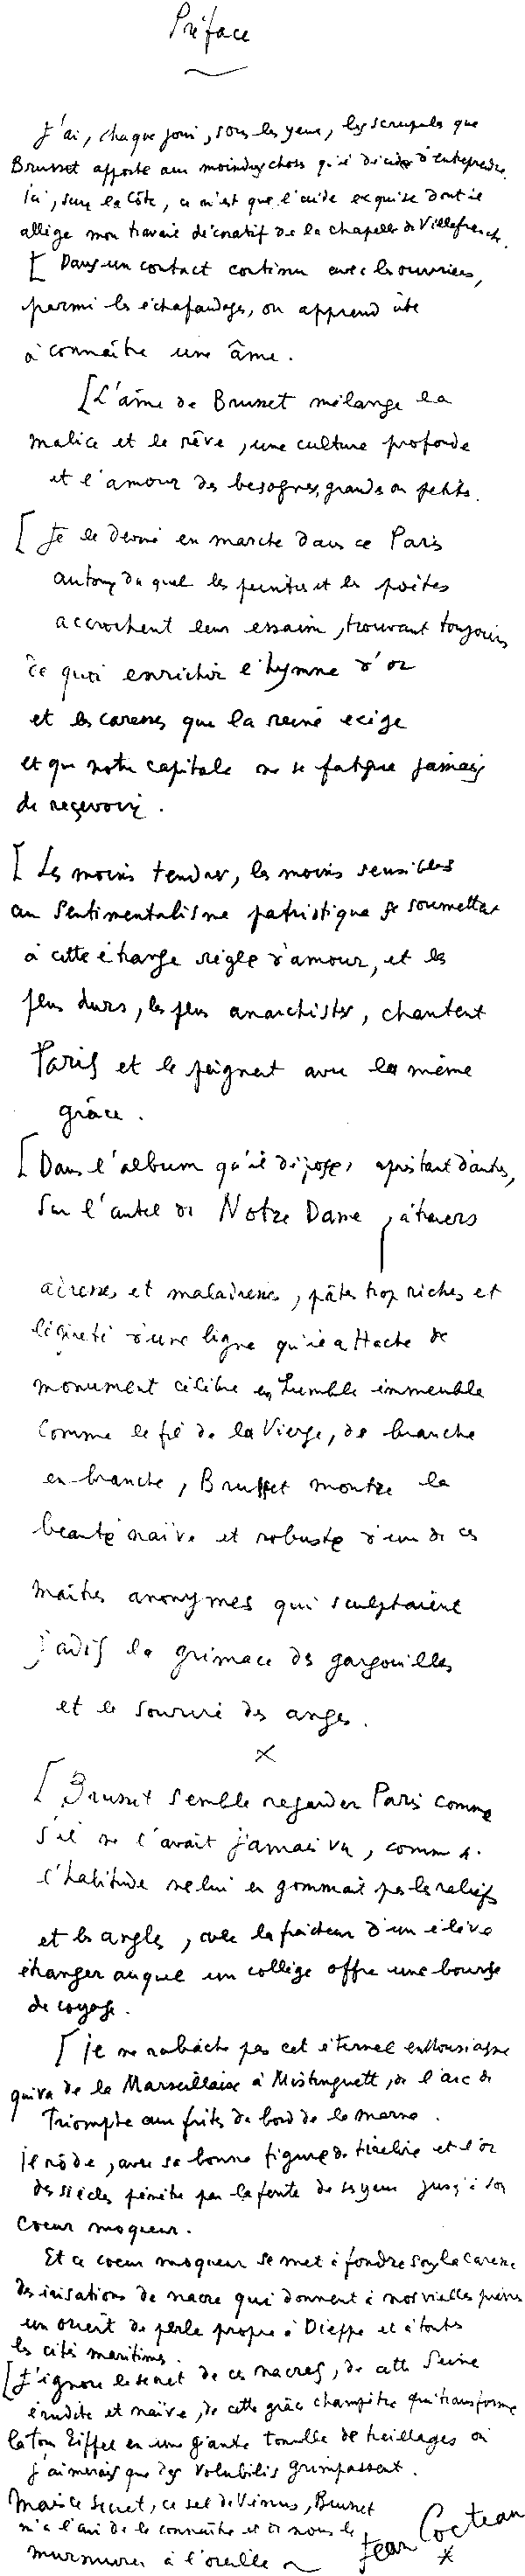 Préface
J'ai, chaque jour, sous les yeux, les scrupules que
Brusset apporte aux moindres choses qu'il décide d'entreprendre.
Ici, sur la Côte, ce n'est que l'aide exquise dont il
allège mon travail décoratif de la chapelle de Villefranche.
[ Dans un contact continu avec les ouvriers,
parmi les échafaudages, on apprend vite
à connaître une âme.
[ L'âme de Brusset mélange la
malice et le rêve, une culture profonde
et l'amour des besognes, grandes ou petites.
[ Je le devine en marche dans ce Paris
autour duquel les peintres et les poètes
accrochent leur essaim, trouvant toujours
de quoi enrichir l'hymne d'or
et les caresses que la reine exige
et que notre capitale ne se fatigue jamais
de recevoir.
[ Les moins tendres, les moins sensibles
au sentimentalisme patriotique se soumettent
à cette étrange règle d'amour, et les
plus durs, les plus anarchistes, chantent
Paris et le peignent avec la même
grâce.
[ Dans l'album qu'il dépose, après tant d'autres,
sur l'autel de Notre Dame, à travers
adresses et maladresses, pâtes trop riches et
légèreté d'une ligne qu'il attache de
monument célèbre en humble immeuble
comme le fil de la Vierge, de branche
en branche, Brusset montre la
beauté naïve et robuste d'un de ces
maîtres anonymes qui sculptaient
jadis la grimace des gargouilles
et le sourire des anges.
×
[ Brusset semble regarder Paris comme
s'il ne l'avait jamais vu, comme si
l'habitude ne lui en gommait pas les reliefs
et les angles, avec la fraîcheur d'un élève
étranger auquel un collège offre une bourse
de voyage.
[ Je ne rabâche pas cet éternel enthousiasme
qui va de la Marseillaise à Mistinguett, de l'arc de
Triomphe aux frites du bord de la Marne.
Il rôde, avec sa bonne figure de tirelire et l'or
des siècles pénètre par la fente de ses yeux jusqu'à son
coeur moqueur.
Et ce coeur moqueur se met à fondre sous la caresse
des irisations de nacre qui donnent à nos vieilles pierres
un orient de perle propre à Dieppe et à toutes
les cités maritimes.
[ J'ignore le secret de ces nacres, de cette Seine
érudite et naïve, de cette grâce champêtre qui transforme
la tour Eiffel en une géante tonnelle de treillages où
j'aimerais que des volubilis grimpassent.
Mais ce secret, ce sel de Vénus, Brusset
m'a l'air de le connaître et de nous le
murmurer à l'oreille
Jean Cocteau
*